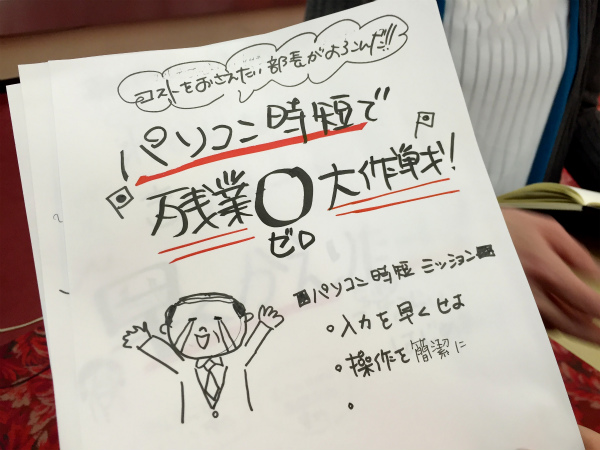 コストをおさえたい部長がよろこんだ!!
パソコン時短で
残業0大作戦!
ゼロ
パソコン時短 ミッション
入力を早くせよ
操作を簡潔に